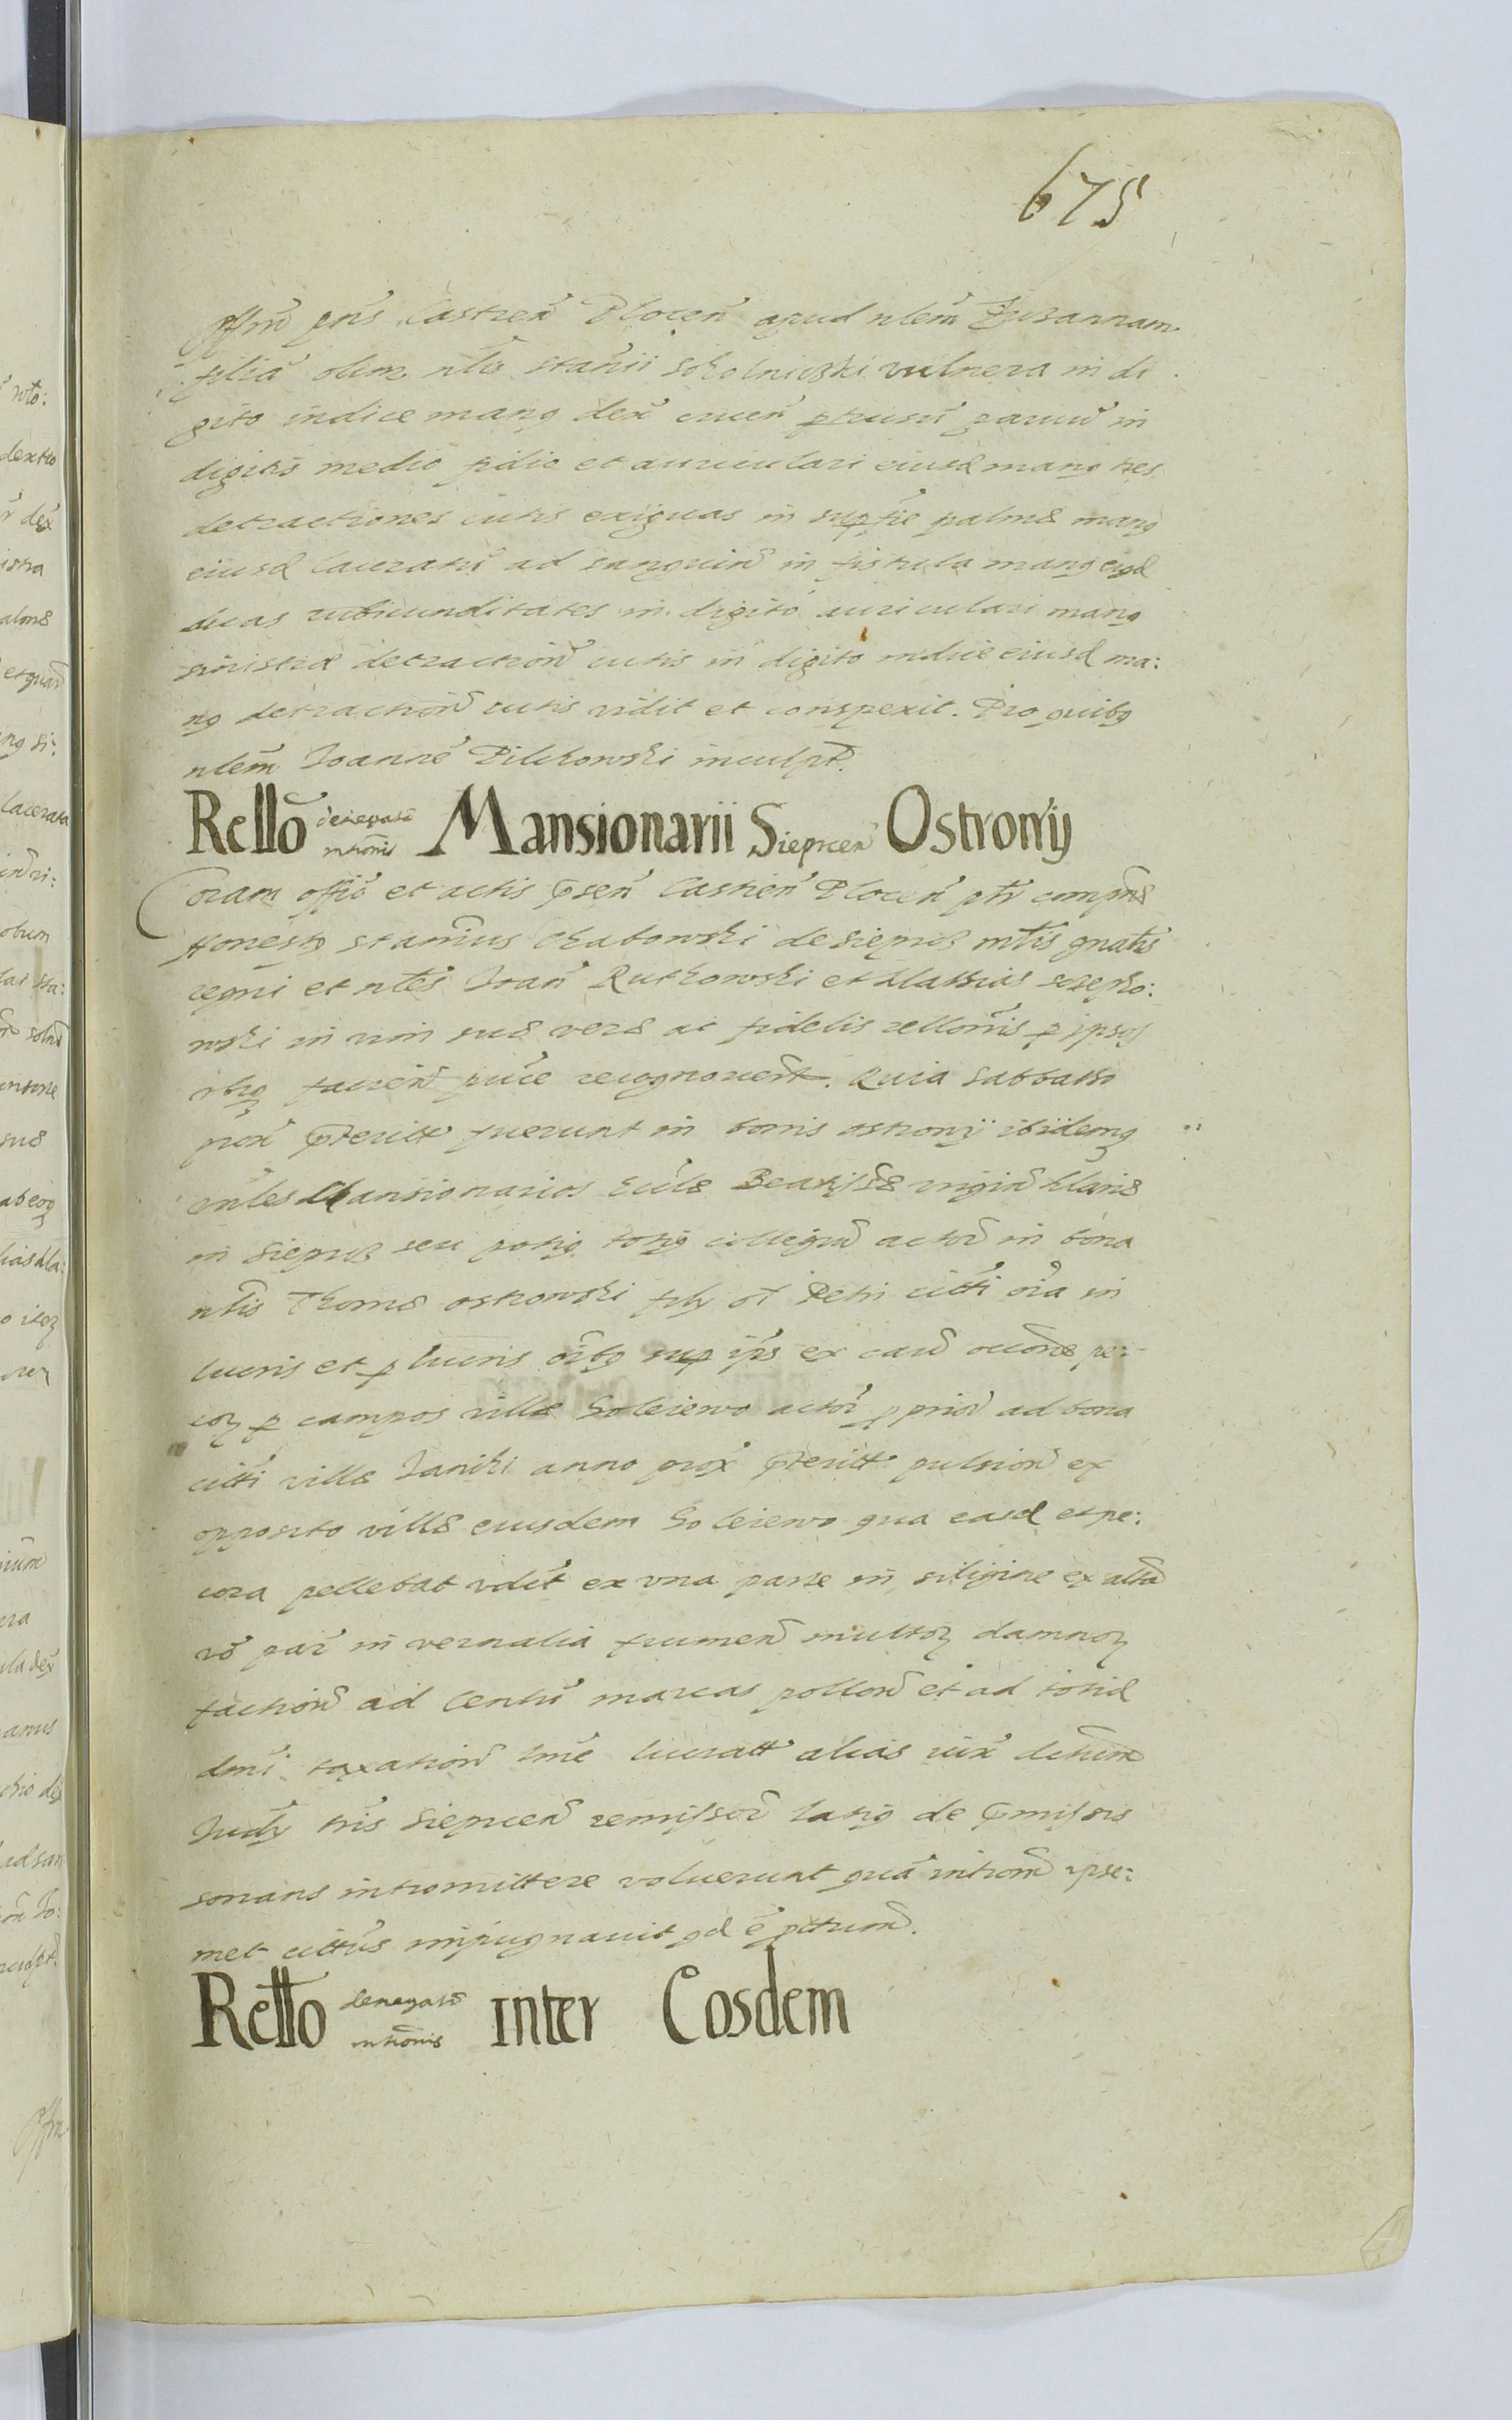 675
Offm̃ pñs Castren̄ Plocen̄ apud nlem̃ Zuzannam
filiā olim nlis Stanii Sokolniczki vulnera in di
gito indice manq dex̃ cruen̄ ptusū parvū in
digitis medio pdio et auriculari eiusd manq tres
detractiones cutis exiguas in supfie palmę manq
eiusd laceratū ad sanguin̄ in fistula manq eiusd
duas rubicunditates in digito auriculari manq
sinistræ detraction̄ cutis in digito indice eiusd ma:
nq detraction̄ cutis vidit et conspexit. Pro quibq
nlem̃ Joannē Pilchowski inculpt.
Rellõ denegatæ intrõnis Mansionarii Siepcen̄ Ostrowy
Coram offiō et actis p̃sen̄ Castren̄ Plocen̄ ptr compñs
Honestq Stanius Chabowski de Sieprcz mtris gnalis
regni et nles Joan̄ Rutkowski et Mathias
wski in vim suę verę ac fidelis rellonis p ipsos
facien̄ puce recognouert. Quia Sabbatho
prox̃ p̃terito fuerunt in bonis ostrowy ibidemq
vnles Mansionarios Ecclę Beatissę virgin̄ Marię
in Sieprcz seu potiq totiq collegiū actor̃ in bona
nlis Thomę ostrowski fily ol Petri citti oia in
lucris et p lucris oibq sup ips ex caū occõnę pe:
corz p campos villæ Goleiewo actor̃ pprior̃ ad bona
citti villę Janiki anno prox̃ p̃terito pulsion̄ ex
opposito villę eiusdem Goleiewo qua easd et pe:
cora pellebat vdet ex vna parte in siligine ex alia
vo par̃ in vernalia frumen̄ multorz damnorz
faction̄ ad Centū marcas pollon̄ et ad totid
dmi taxation̄ tme lucratt alias iux̃ decretum
Judy tris Siepcen̄ remissor̃ latiq de p̃missis
sonans intromittere voluerunt quā introm̄ ipse:
met cittus impugnauit qd ē ptctum̄.
Rellõ denegatæ intrõnis inter Eosdem